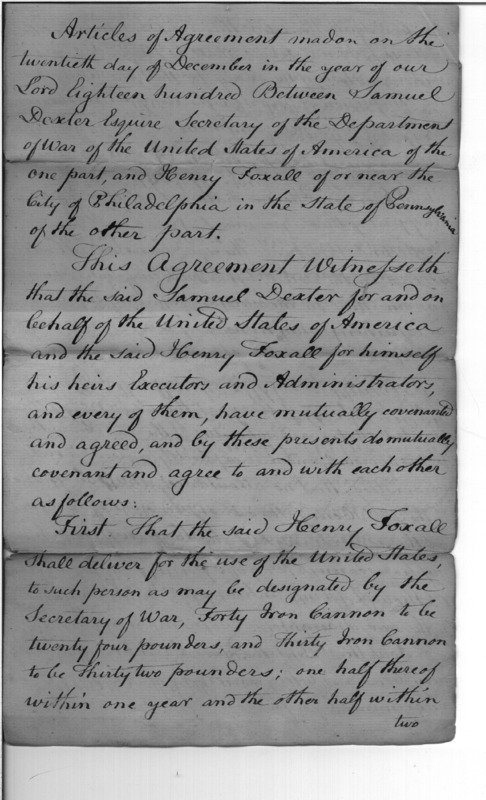 Articles of Agreement madon on the
twentieth day of December in the year of our
Lord Eighteen hundred Between Samuel
Dexter Esquire Secretary of the Department
of War of the United States of America of the
one part, and Henry Foxall of or near the
City of Philadelphia in the State of Pennsylvania
of the other part.
This Agreement Witnesseth
that the said Samuel Dexter for and on
behalf of the United States of America
and the said Henry Foxall for himself
his heirs Executors and Administrators,
and every of them, have mutually covenanted
and agreed, and by these presents do mutually
covenant and agree to and with each other
as follows:
First. That the said Henry Foxall
shall deliver for the use of the United States,
to such person as may be designated by the
Secretary of War, Forty Iron Cannon to be
twenty four pounders, and Thirty Iron Cannon
to be Thirty two pounders; one half thereof
within one year and the other half within
two